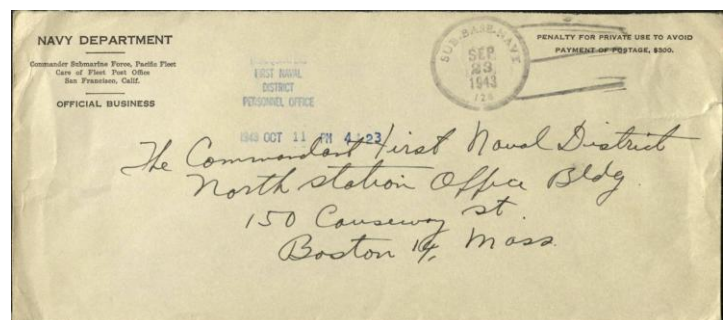 NAVY DEPARTMENT
Commander Submarine Force, Pacific Fleet
Care of Fleet Post Office
San Francisco, Calif.
OFFICIAL BUSINESS
FIRST NAVAL
DISTRICT
PERSONNEL OFFICE
1943 OCT 11 PM 4 23
SUB. BASE. NAVY
SEP
23
1943
PENALTY FOR PRIVATE USE TO AVOID
PAYMENT OF POSTAGE, $300.
The Commandant First Naval District
North Station Office Bldg.
150 Causeway St.
Boston 14, Mass.